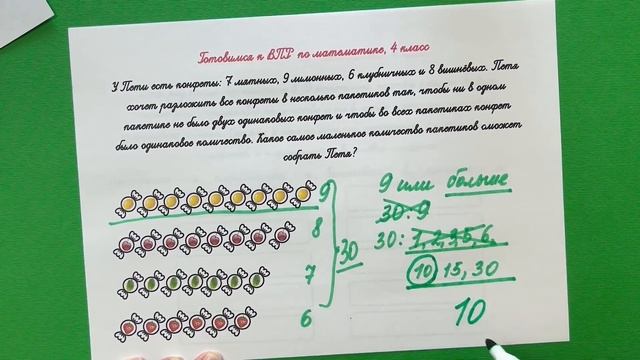 Готовимся к ВПР по математике, 4 класс
У Пети есть конфеты: 7 мятных, 9 лимонных, 6 клубничных и 8 вишнёвых. Петя
хочет разложить все конфеты в несколько пакетиков так, чтобы ни в одном
пакетике не было двух одинаковых конфет и чтобы во всех пакетиках конфет
было одинаковое количество. Какое самое маленькое количество пакетиков сможет
собрать Петя?
9
8
7
6
30
9 или больше
30:9
30: 1, 2, 3, 5, 6,
10 15, 30
10